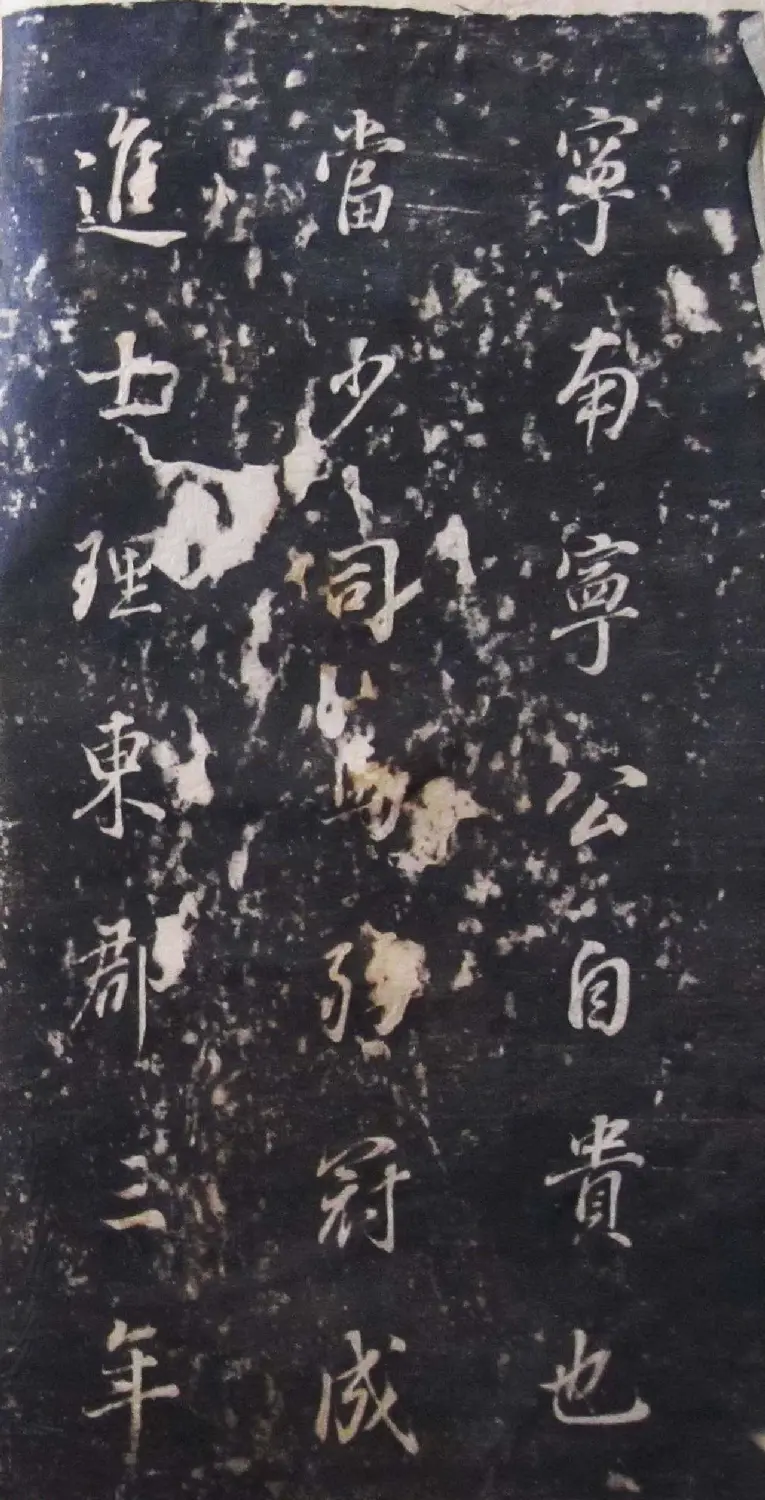 寧南寧公自貴也
當少司馬弱冠成
進士理東郡三年